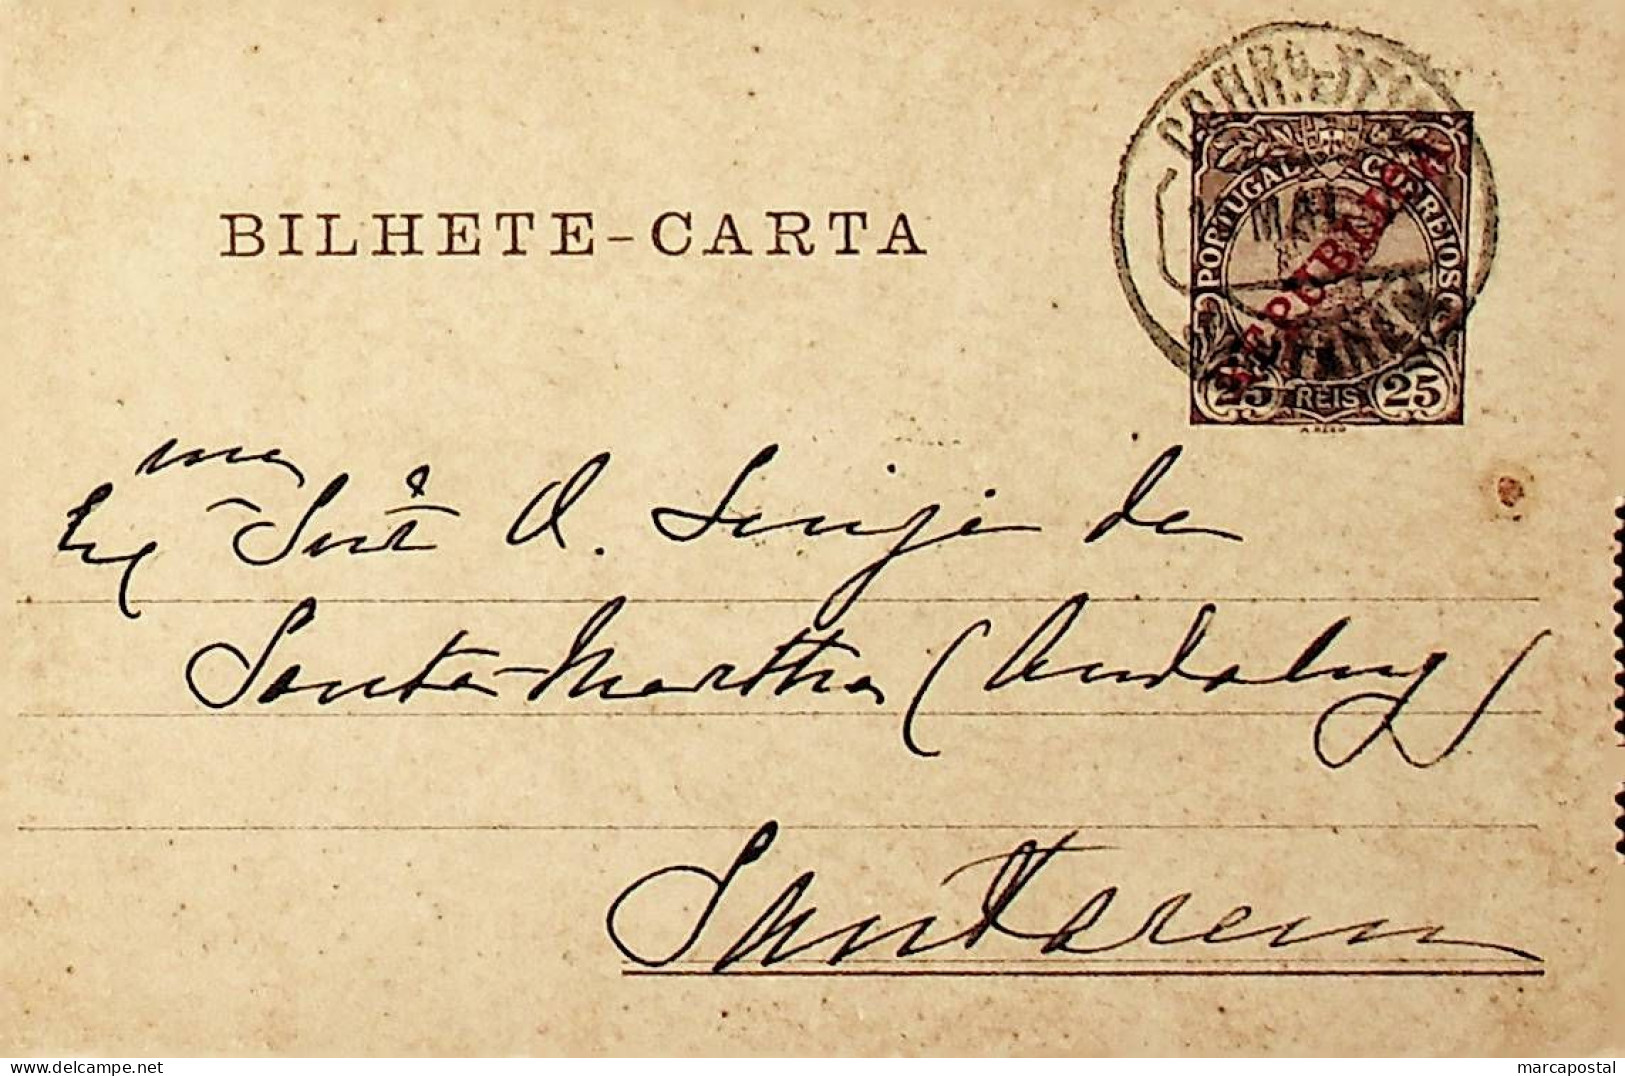 BILHETE-CARTA
PORTUGAL CORREIOS
REPUBLICA
MAI
25 REIS 25
Exma Snrª D. Luiza da
Santa Martha (Andaluz)
Santarem
delcampe.net
marcapostal